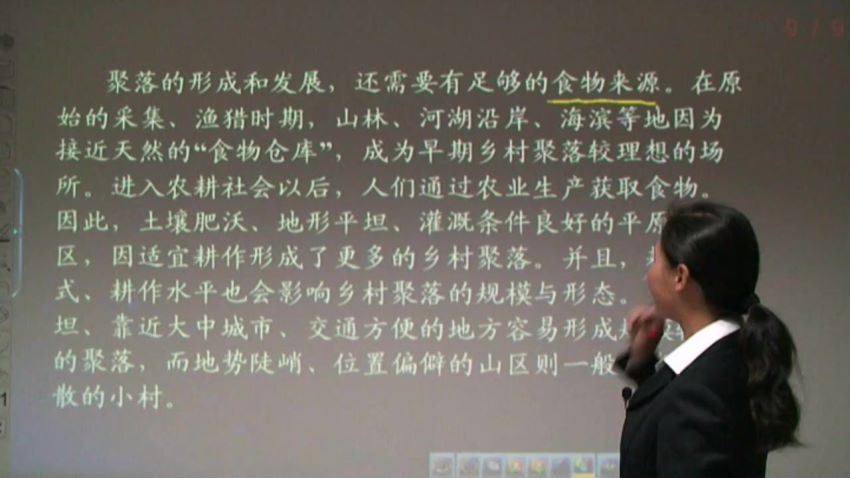 聚落的形成和发展，还需要有足够的食物来源。在原
始的采集、渔猎时期，山林、河湖沿岸、海滨等地因为
接近天然的“食物仓库”，成为早期乡村聚落较理想的场
所。进入农耕社会以后，人们通过农业生产获取食物。
因此，土壤肥沃、地形平坦、灌溉条件良好的平原
区，因适宜耕作形成了更多的乡村聚落。并且，
式、耕作水平也会影响乡村聚落的规模与形态。
坦、靠近大中城市、交通方便的地方容易形成
的聚落，而地势陡峭、位置偏僻的山区则一般
散的小村。